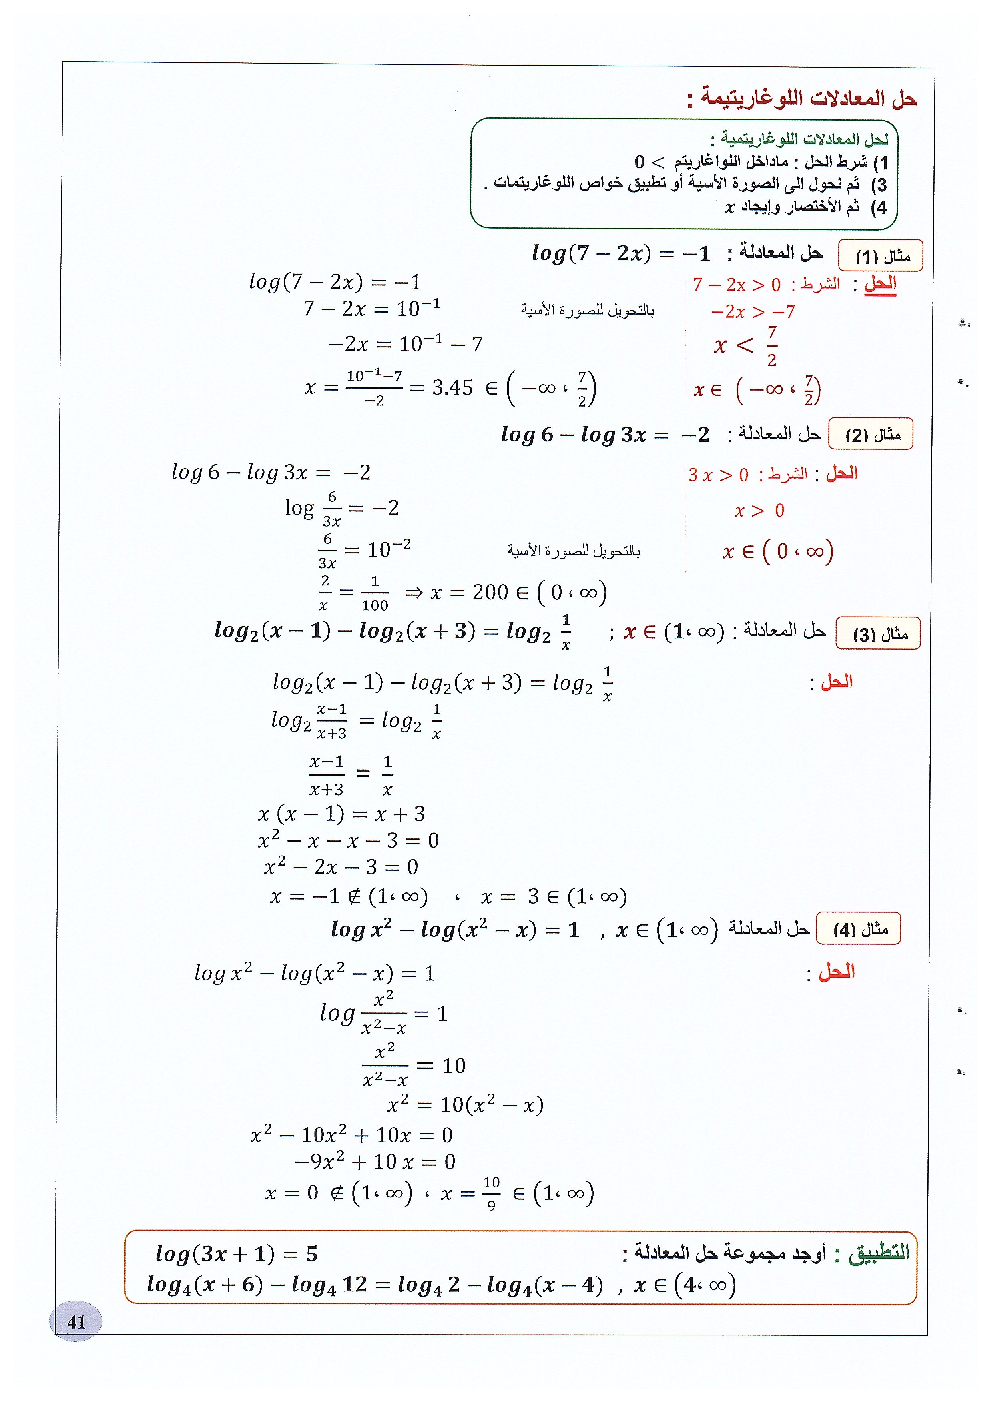 حل المعادلات اللوغاريتيمة :
لحل المعادلات اللوغاريتمية :
1) شرط الحل : ماداخل اللواغاريتم > 0
3) ثم نحول الى الصورة الأسية أو تطبيق خواص اللوغاريتمات .
4) ثم الأختصار وإيجاد x
مثال (1) حل المعادلة : log(7 − 2x) = −1
الحل : الشرط : 7 − 2x > 0
log(7 − 2x) = −1
−2x > −7
7 − 2x = 10⁻¹ بالتحويل للصورة الأسية
x < 7/2
−2x = 10⁻¹ − 7
x ∈ (−∞ ، 7/2)
x = (10⁻¹−7)/−2 = 3.45 ∈ (−∞ ، 7/2)
مثال (2) حل المعادلة : log 6 − log 3x = −2
الحل : الشرط : 3x > 0
log 6 − log 3x = −2
x > 0
log 6/3x = −2
x ∈ (0 ، ∞)
6/3x = 10⁻² بالتحويل للصورة الأسية
2/x = 1/100 ⇒ x = 200 ∈ (0 ، ∞)
مثال (3) حل المعادلة : log₂(x − 1) − log₂(x + 3) = log₂ 1/x ; x ∈ (1، ∞)
الحل :
log₂(x − 1) − log₂(x + 3) = log₂ 1/x
log₂ (x−1)/(x+3) = log₂ 1/x
(x−1)/(x+3) = 1/x
x (x − 1) = x + 3
x² − x − x − 3 = 0
x² − 2x − 3 = 0
x = −1 ∉ (1، ∞) ، x = 3 ∈ (1، ∞)
مثال (4) حل المعادلة log x² − log(x² − x) = 1 , x ∈ (1، ∞)
الحل :
log x² − log(x² − x) = 1
log x²/(x²−x) = 1
x²/(x²−x) = 10
x² = 10(x² − x)
x² − 10x² + 10x = 0
−9x² + 10 x = 0
x = 0 ∉ (1، ∞) ، x = 10/9 ∈ (1، ∞)
التطبيق : أوجد مجموعة حل المعادلة : log(3x + 1) = 5
log₄(x + 6) − log₄ 12 = log₄ 2 − log₄(x − 4) , x ∈ (4، ∞)
41